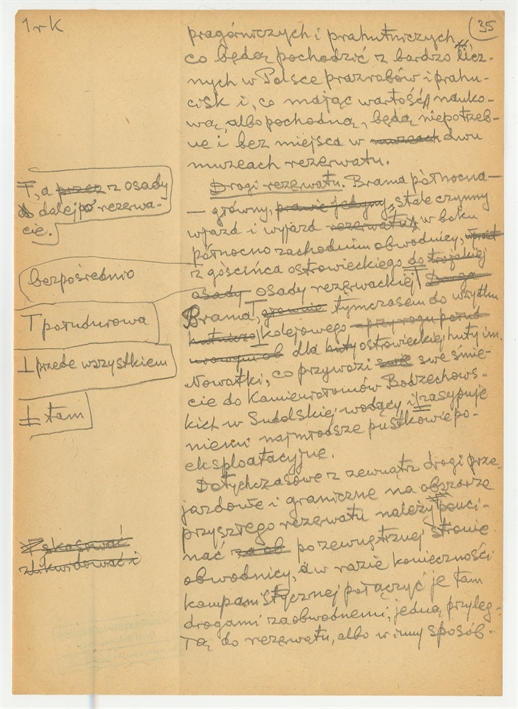 1rk
35
pragórniczych i prahutniczych,
co będą pochodzić z bardzo licz-
nych w Polsce prazrobów i prahu-
cisk i, co mając wartość nauko-
wą, albo pochodną, będą niepotrzeb-
ne i bez miejsca w muzeach dwu
muzeach rezerwatu.
Drogi rezerwatu. Brama północna-
- główny, prawie jedyny, stale czynny
wjazd i wyjazd rezerwatu w boku
północno zachodnim obwodnicy,
z gościńca ostrowieckiego do
osady osady rezerwackiej
Brama, tymczasem do użytku
kolejowego
dla huty ostrowieckiej huty im.
Nowotki, co przywozi swe śmie-
cie do Kamieniołomów Bodzechows-
kich w Sudolskiej wodący i zasypuje
niemi najmłodsze pustkowie po-
eksploatacyjne.
Dotychczasowe z zewnątrz drogi prze-
jazdowe i graniczne na obszarze
przyszłego rezerwatu należy pouci-
nać po zewnętrznej stronie
obwodnicy, a w razie konieczności
kompanistycznej połączyć je tam
drogami zaobwodnemi, jedną przyleg-
łą do rezerwatu, albo w inny sposób.
T, a przez z osady
dalej po rezerwa-
cie.
bezpośrednio
T południowa
⊥ przede wszystkiem
⊥ tam
skasować
zlikwidować i